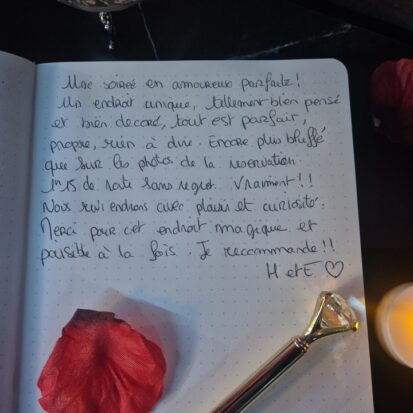 Une soirée en amoureux parfaite !
Un endroit unique, tellement bien pensé
et bien décoré, tout est parfait,
propre, rien à dire. Encore plus bluffé
que sur les photos de la reservation.
1h15 de route sans regret. Vraiment !!
Nous reviendrons avec plaisir et curiosité.
Merci pour cet endroit magique et
paisible à la fois. Je recommande !!
H et E ♡